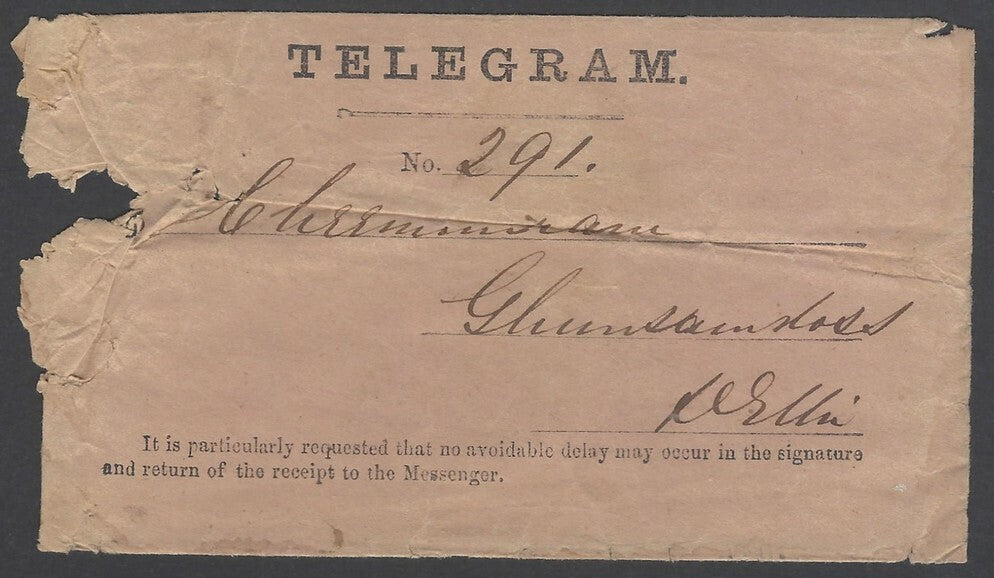 TELEGRAM.
No. 291.
Ghunsamdoss
Delhi
It is particularly requested that no avoidable delay may occur in the signature
and return of the receipt to the Messenger.